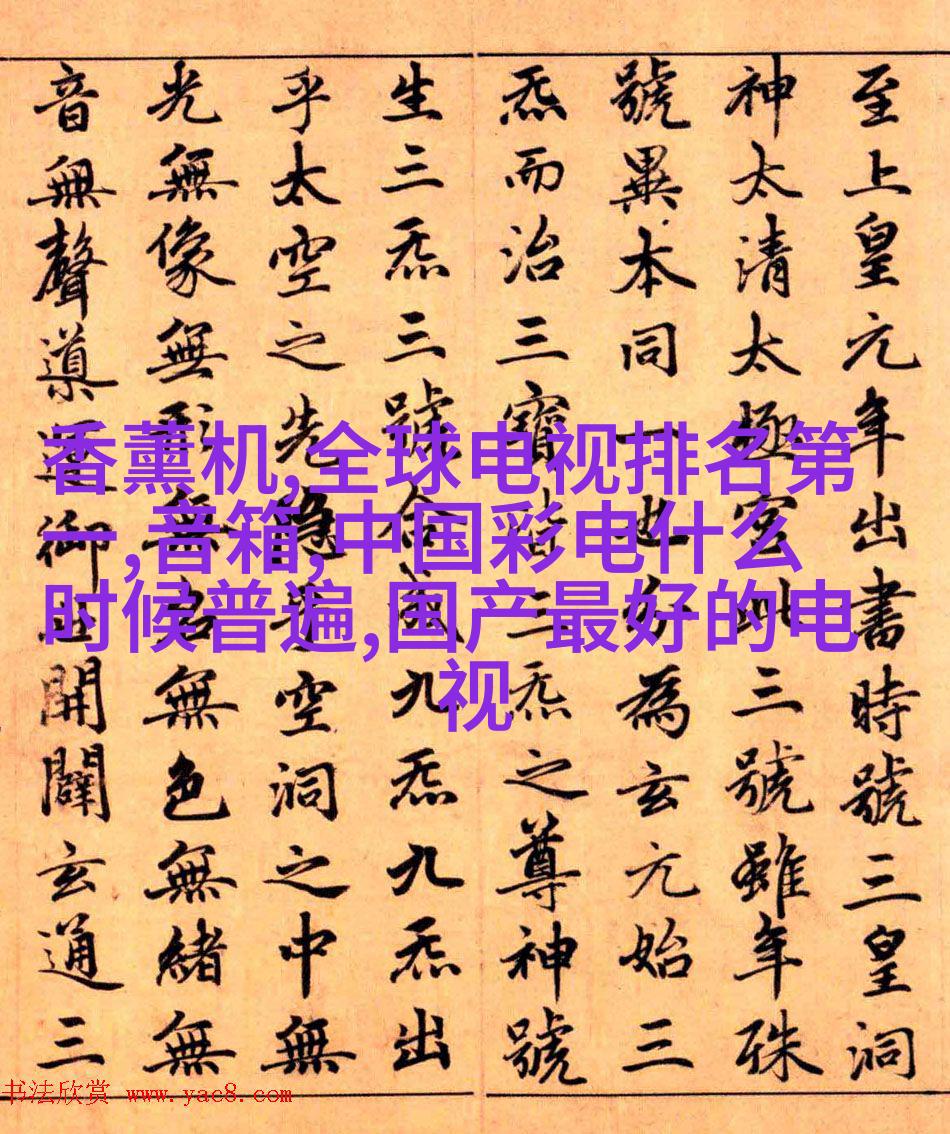 至上皇元年出書時號三皇洞
神太清太極宮此三號雖年殊
號異本同一也分為玄元始三
炁而治三寶皆三炁之尊神號
生三炁三號合成九炁九炁出
乎太空之先隱乎空洞之中無
光無像無形無名無色無緒無
音無聲導運御世開闢玄通三
香薰机,全球电视排名第
一,音箱,中国彩电什么
时候普遍,国产最好的电
视
书法欣赏 www.yac8.com